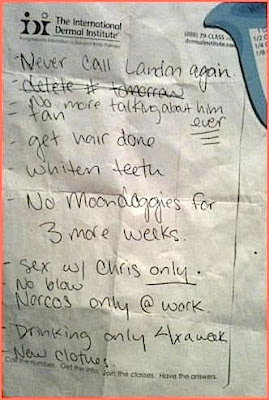 The International
Dermal Institute
Postgraduate Education in Skin and Body Therapy
(888) 29-CLASS
dermalinstitute.com
1 C
1/2 C
1/4
1/8
- Never call Landon again.
- delete # tomorrow
- No more talking about him
ever
- tan
- get hair done
- whiten teeth
- No Moondoggies for
3 more weeks.
- sex w/ Chris only.
- No blow
- Norcos only @ work.
- Drinking only 4xaweek
- New clothes.
Call the number. Get the info. Join the classes. Have the answers.